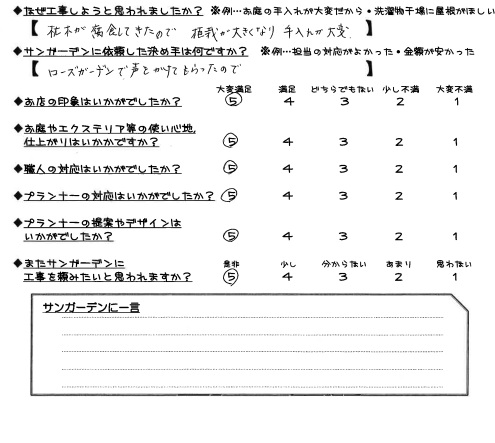 ◆なぜ工事しようと思われましたか? ※例…お庭の手入れが大変だから・洗濯物干場に屋根がほしい
【 枕木が腐食してきたので 植栽が大きくなり 手入れが大変 】
◆サンガーデンに依頼した決め手は何ですか? ※例…担当の対応がよかった・金額が安かった
【 ローズガーデンで声をかけてもらったので 】
大変満足 満足 どちらでもない 少し不満 大変不満
◆お店の印象はいかがでしたか? 5 4 3 2 1
◆お庭やエクステリア等の使い心地、
仕上がりはいかかですか? 5 4 3 2 1
◆職人の対応はいかがでしたか? 5 4 3 2 1
◆プランナーの対応はいかがでしたか? 5 4 3 2 1
◆プランナーの提案やデザインは
いかがでしたか? 5 4 3 2 1
◆またサンガーデンに 是非 少し 分からない あまり 思わない
工事を頼みたいと思われますか? 5 4 3 2 1
サンガーデンに一言